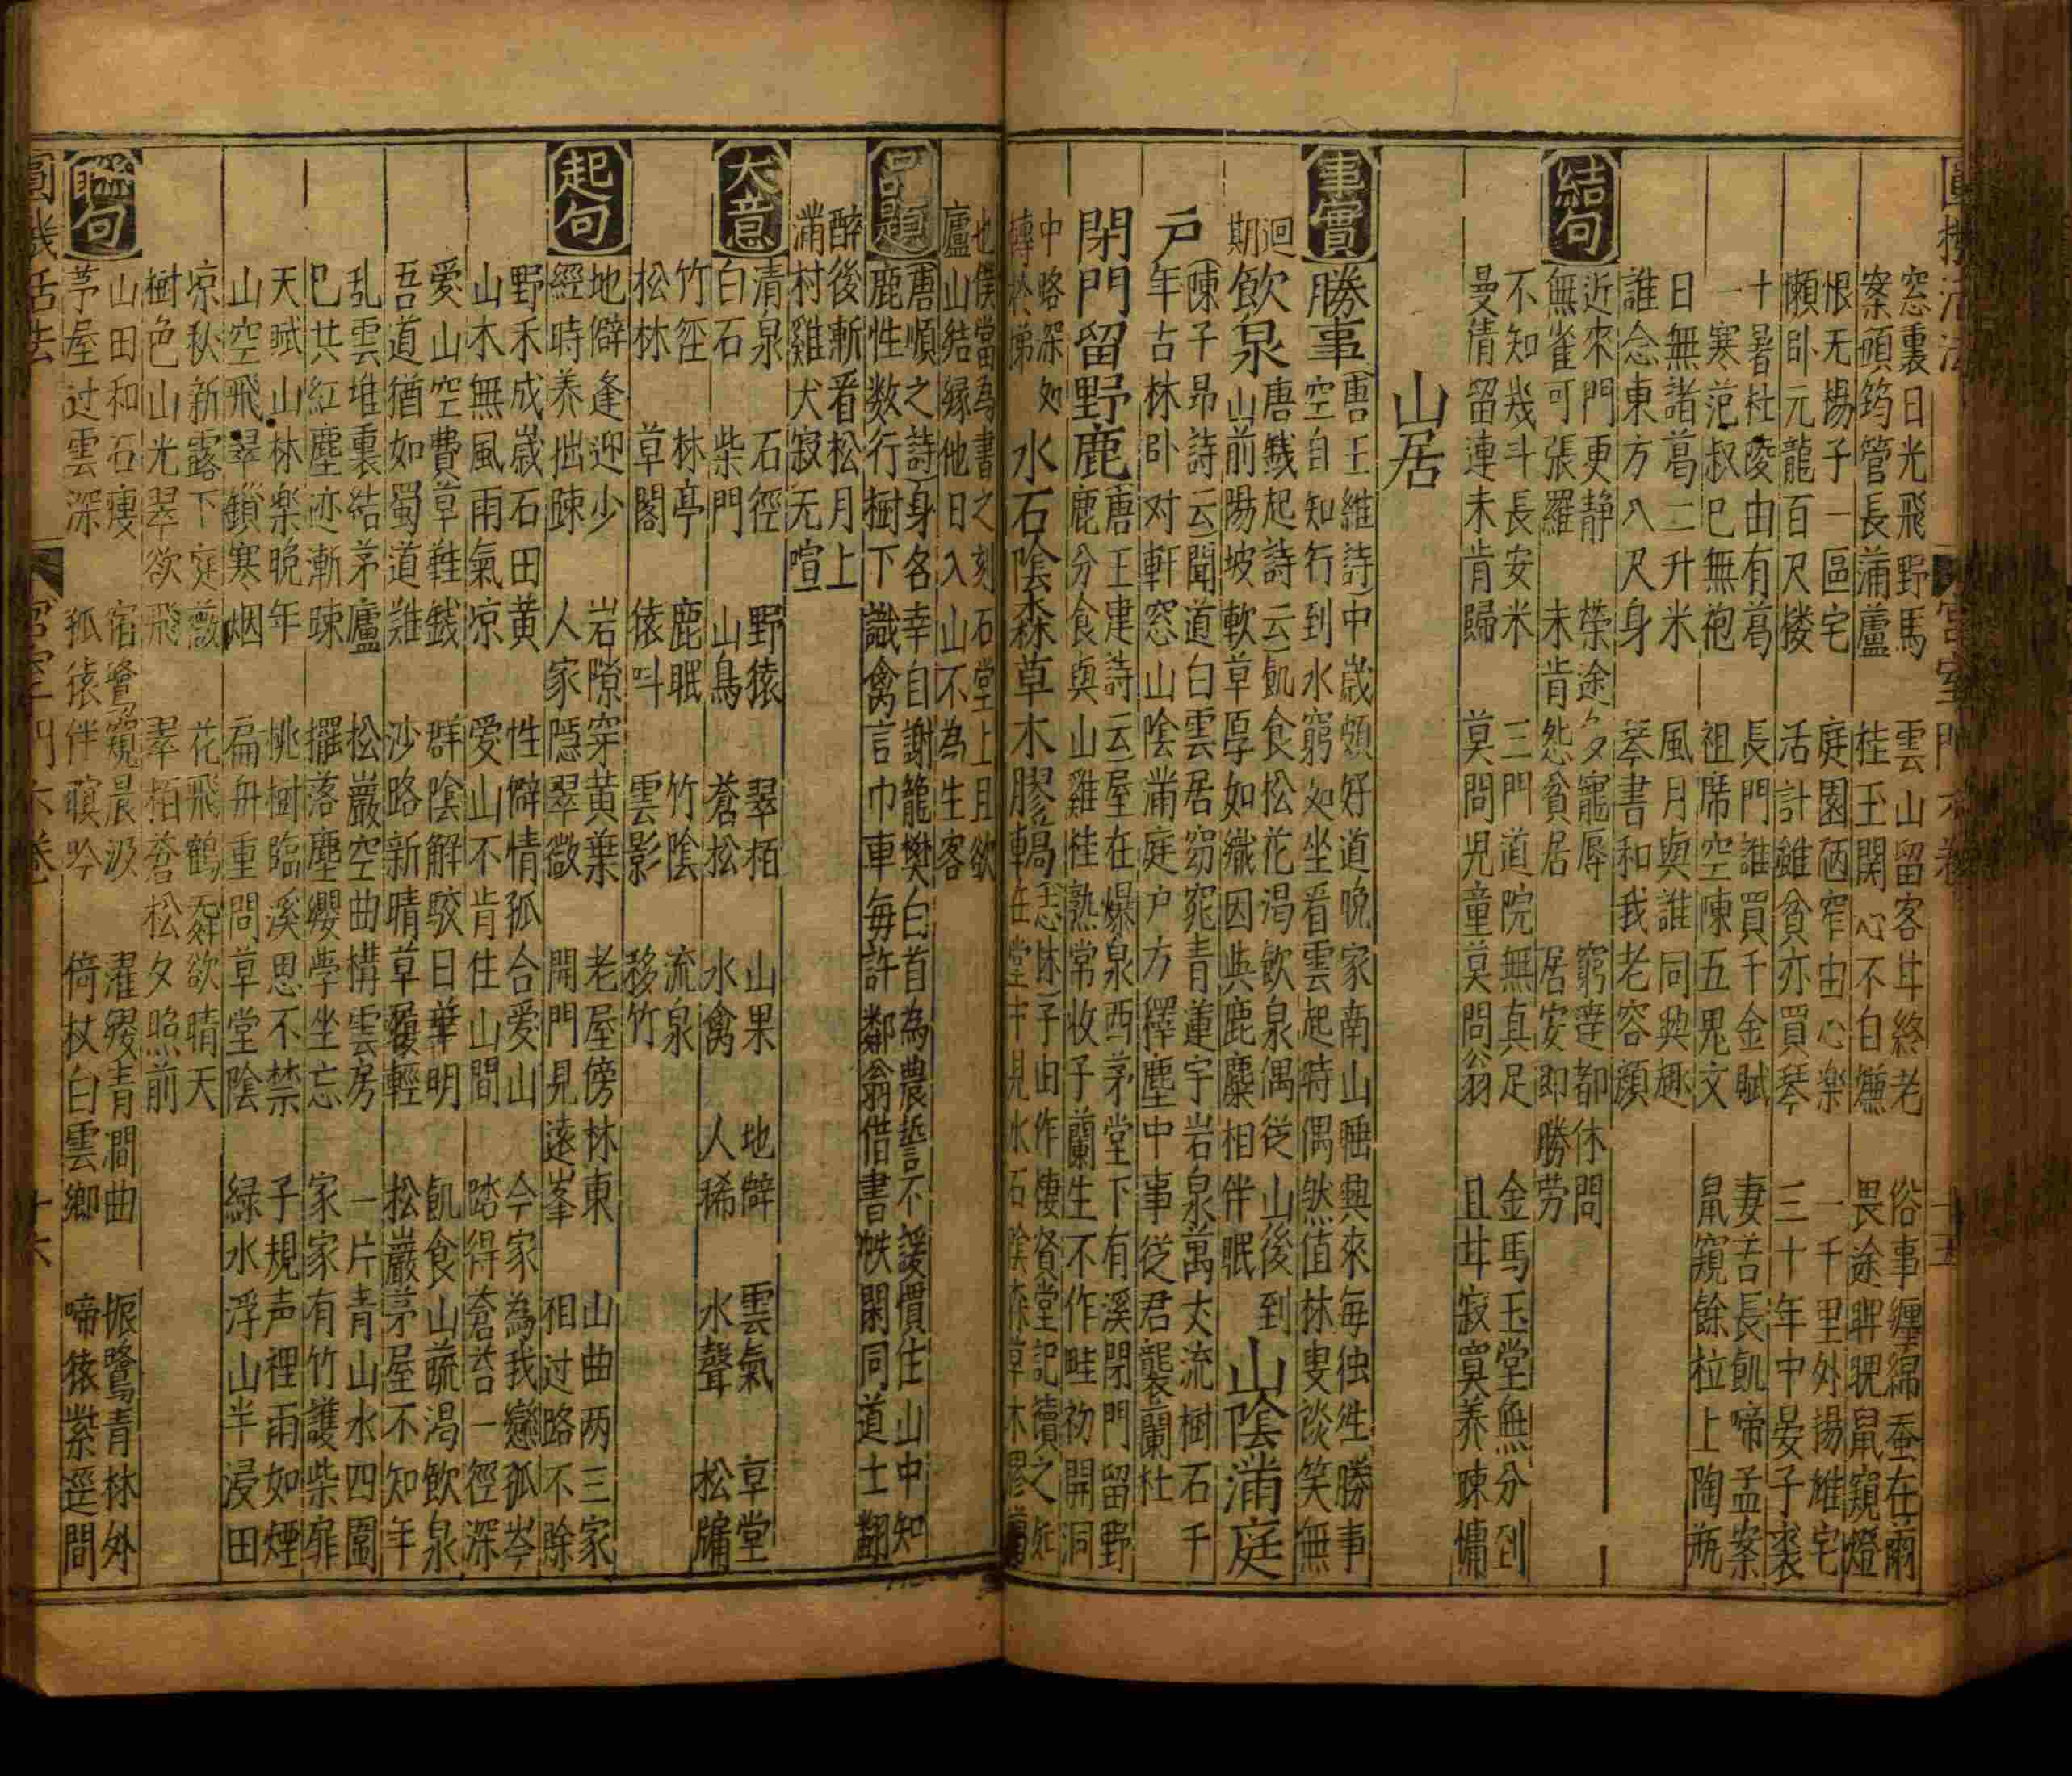 圓機活法 宮室門六卷 十五
窓裏日光飛野馬 雲山留客甘終老 俗事纏綿蚕在繭
案頭筠管長蒲蘆 桂玉関心不自嫌 畏途睥睨鼠窺燈
恨无楊子一區宅 庭園陋窄由心楽 一千里外揚雄宅
懶卧元龍百尺楼 活計雖貧亦買琴 三十年中晏子裘
十暑杜陵由有葛 長門誰買千金賦 妻苦長飢啼孟案
一寒范叔巳無袍 祖席空陳五鬼文 鼠窺餘粒上陶瓶
日無諸葛二升米 風月與誰同興趣
誰念東方八尺身 琴書和我老容顔
結句
近來門更静 榮途多寵辱 窮達都休問
無雀可張羅 未肯怨貧居 居安即勝劳
不知幾斗長安米 三門道院無真足 金馬玉堂無分到
曼倩留連未肯歸 莫問児童莫問翁 且甘寂寞养踈慵
山居
事實
勝事 唐王維詩 中歲頗好道晚家南山陲興來每独徃勝事
空自知行到水窮处坐看雲起時偶然值林叟談笑無
迴期 飲泉 唐錢起詩云飢食松花渴飲泉偶從山後到
山前陽坡軟草厚如織因與鹿麋相伴眠 山陰滿庭
户 陳子昻詩云聞道白雲居窈窕青蓮宇岩泉萬丈流樹石千
年古林卧对軒窓山陰滿庭户方釋塵中事從君襲蘭杜
閉門留野鹿 唐王建詩云屋在爆泉西茅堂下有溪閉門留野
鹿分食與山雞桂熟常收子蘭生不作畦初開洞
中路深如 水石陰森草木膠轕 子由作棲賢堂記讀之如
在堂中見水石陰森草木膠轕
也僕當為書之刻石堂上且欲
廬山結緣他日入山不為生客
品題
唐順之詩 身名幸自謝籠樊白首為農誓不諼慣住山中知
鹿性数行樹下識禽言巾車每許鄰翁借書帙閑同道士翻
醉後漸看松月上
滿村雞犬寂无喧
大意
清泉 石徑 野猿 翠栢 山果 地僻 雲氣 草堂
白石 柴門 山鳥 蒼松 水禽 人稀 水聲 松牖
竹徑 林亭 鹿眠 竹陰 流泉
松林 草閣 猿呌 雲影 移竹
起句
地僻逢迎少 岩隙穿黄葉 老屋傍林東 山曲两三家
經時养拙踈 人家隱翠微 開門見遠峯 相过路不賒
野禾成歲石田黄 性僻情孤合爱山 今家為我戀孤岑
山木無風雨氣凉 愛山不肯住山間 踏得蒼苔一徑深
爱山空費草鞋錢 群陰解駁日華明 飢食山蔬渴飲泉
吾道猶如蜀道難 沙路新晴草履輕 松巖茅屋不知年
乱雲堆裏结茅廬 松巖空曲構雲房 一片青山水四圍
巳共紅塵迹漸踈 擺落塵纓學坐忘 家家有竹護柴扉
天賦山林楽晚年 桃樹臨溪思不禁 子規声裡雨如煙
山空飛翠鎖寒烟 扁舟重問草堂陰 緑水浮山半浸田
凉秋新露下庭薇 花飛鶴舞欲晴天
樹色山光翠欲飛 翠栢蒼松夕照前
聮句
山田和石痩 宿鷺窺晨汲 濯纓青澗曲 振鷺青林外
茅屋过雲深 孤猿伴暝吟 倚杖白雲鄉 啼猿紫逕間
圓機活法 宮室門六卷 十六